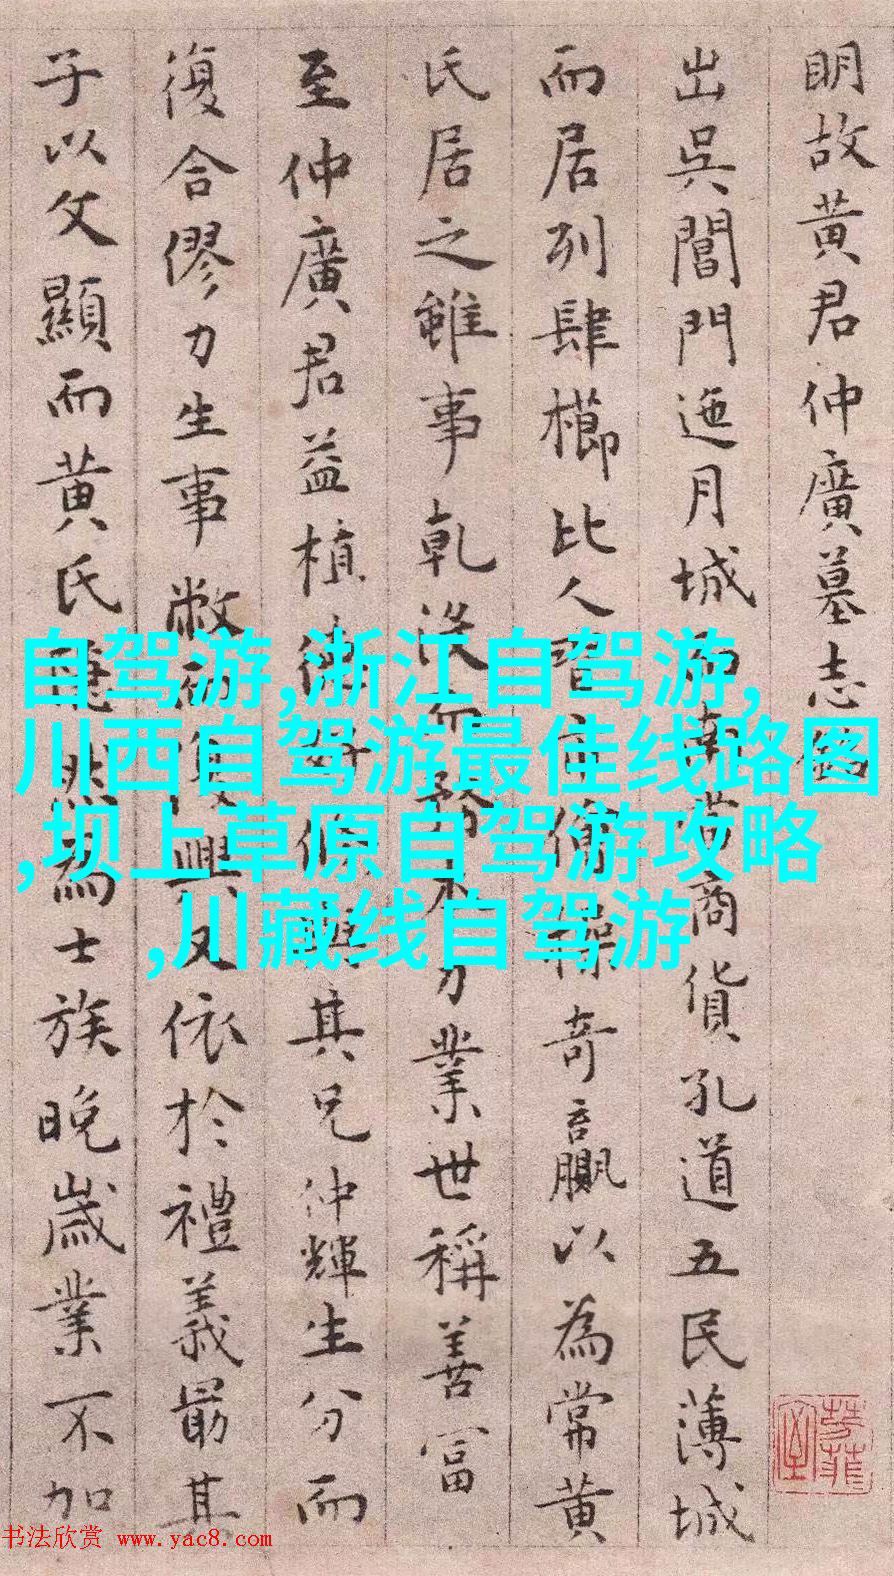 明故黄君仲廣墓志
出吳閶門迤月城而南商貨孔道五民薄城
而居列肆櫛比人習市儈操奇贏以為常黄
氏居之雖事乾没而務本力業世稱善富
至仲廣君益植德好修與其兄仲輝生分而
復合僇力生事敝而復興又依於禮義最其
子以文顯而黄氏然為士族晚嵗業不加
自驾游,浙江自驾游,
川西自驾游最佳线路图
,坝上草原自驾游攻略
,川藏线自驾游
书法欣赏 www.yac8.com